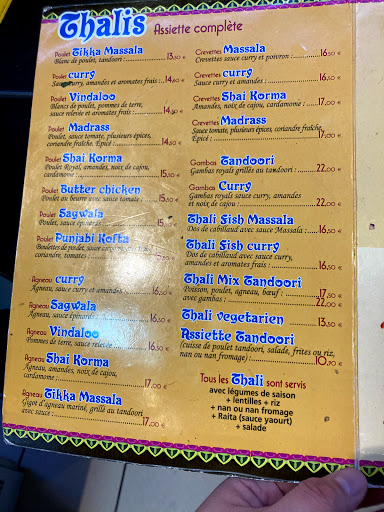 Thalis Assiette complète
Poulet Tikka Massala
Blanc de poulet, tandoori : 13,50 €
Poulet curry
Sauce curry, amandes et aromates frais : 14,50 €
Poulet Vindaloo
Blancs de poulet, pommes de terre,
sauce relevée et aromates frais : 14,50 €
Poulet Madrass
Poulet, sauce tomate, plusieurs épices,
coriandre fraîche. Épicé : 14,50 €
Poulet Shai Korma
Poulet Royal, amandes, noix de cajou,
cardamome : 15,50 €
Poulet Butter chicken
Poulet au beurre avec sauce tomate : 15,50 €
Poulet Sagwala
Poulet, sauce épinards
Poulet Punjabi Kofta
Boulettes de poulet, sauce
coriandre, tomates :
Agneau curry
Agneau, sauce curry et amandes : 16,50 €
Agneau Sagwala
Agneau, sauce épinards : 16,50 €
Agneau Vindaloo
Pommes de terre, sauce relevée : 16,50 €
Agneau Shai Korma
Agneau, amandes, noix de cajou,
cardamome : 17,00 €
Agneau Tikka Massala
Gigot d'agneau mariné, grillé au tandoori
avec sauce : 17,00 €
Crevettes Massala
Crevettes sauce curry et poivron : 16,50 €
Crevettes curry
Sauce curry et amandes : 16,50 €
Crevettes Shai Korma
Amandes, noix de cajou, cardamome : 17,00 €
Crevettes Madrass
Sauce tomate, plusieurs épices, coriandre fraîche,
Épicé : 17,00 €
Gambas Tandoori
Gambas royals grillés au tandoori : 22,00 €
Gambas Curry
Gambas royals sauce curry, amandes
et noix de cajou : 22,00 €
Thali Fish Massala
Dos de cabillaud avec sauce Massala : 16,50 €
Thali Fish curry
Dos de cabillaud avec sauce curry,
amandes et aromates frais : 16,50 €
Thali Mix Tandoori
Poisson, poulet, agneau, bœuf : 17,50 €
avec gambas : 22,00 €
Thali vegetarien 13,50 €
Assiette Tandoori
(cuisse de poulet tandoori, salade, frites ou riz,
nan ou nan fromage) 10,90 €
Tous les Thali sont servis
avec légumes de saison
+ lentilles + riz
+ nan ou nan fromage
+ Raita (sauce yaourt)
+ salade